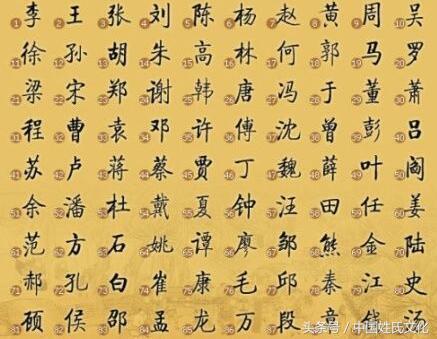 1李 2王 3张 4刘 5陈 6杨 7赵 8黄 9周 10吴
11徐 12孙 13胡 14朱 15高 16林 17何 18郭 19马 20罗
21梁 22宋 23郑 24谢 25韩 26唐 27冯 28于 29董 30萧
31程 32曹 33袁 34邓 35许 36傅 37沈 38曾 39彭 40吕
41苏 42卢 43蒋 44蔡 45贾 46丁 47魏 48薛 49叶 50阎
51余 52潘 53杜 54戴 55夏 56钟 57汪 58田 59任 60姜
61范 62方 63石 64姚 65谭 66廖 67邹 68熊 69金 70陆
71郝 72孔 73白 74崔 75康 76毛 77邱 78秦 79江 80史
81顾 82侯 83邵 84孟 85龙 86万 87段 章 钱 汤
头条号 / 中国姓氏文化